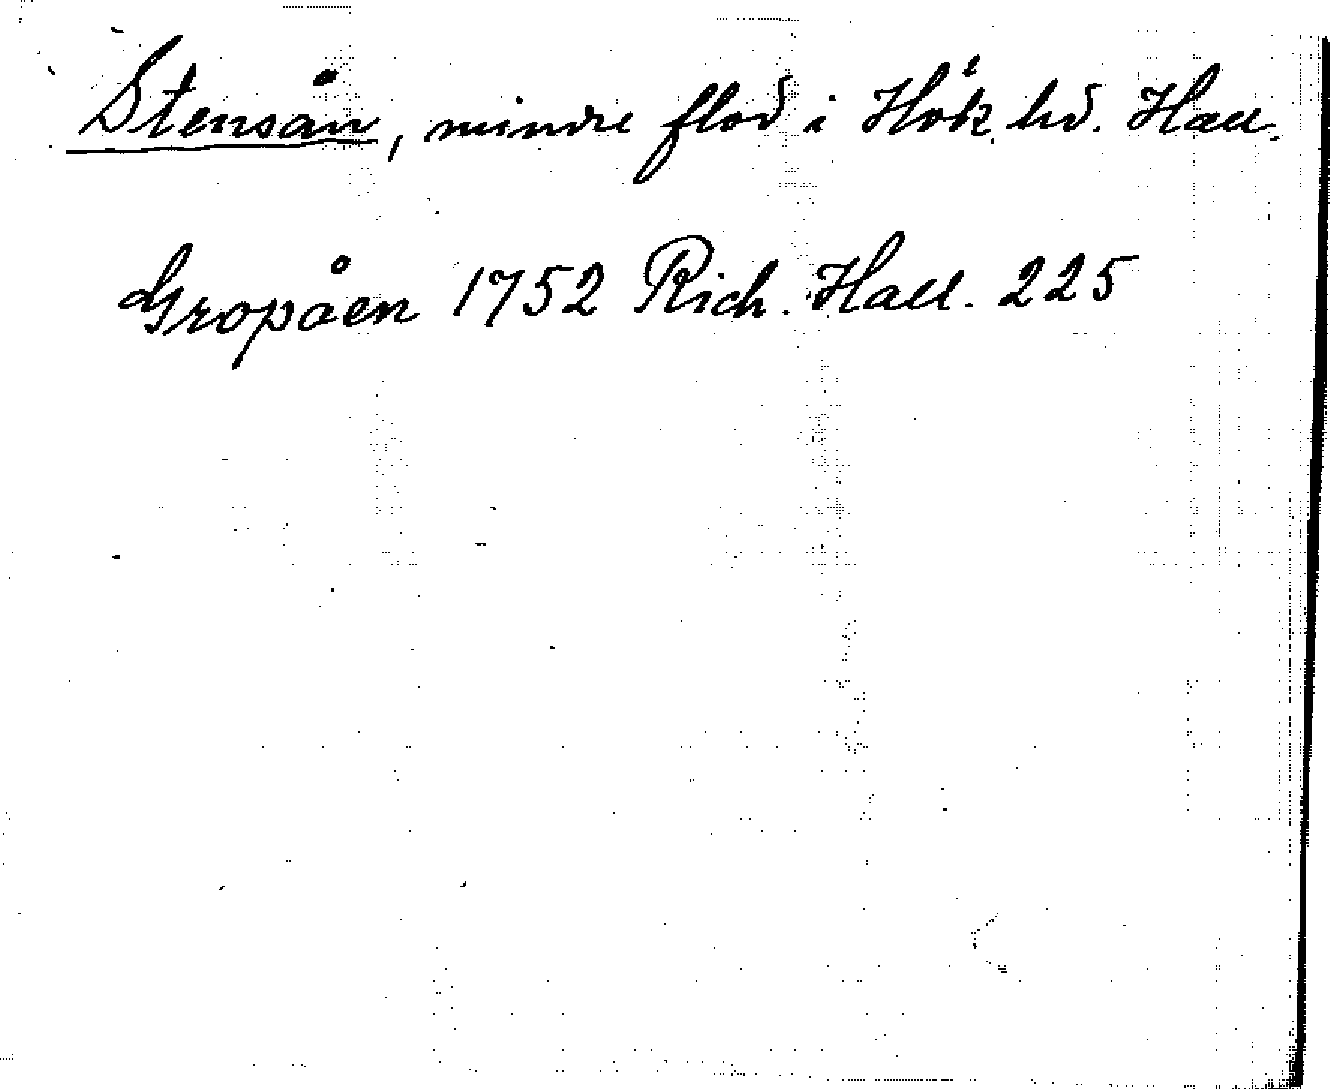 Stensån, mindre flod i Hök hd. Hall.
Gropåen 1752 Rich. Hall. 225